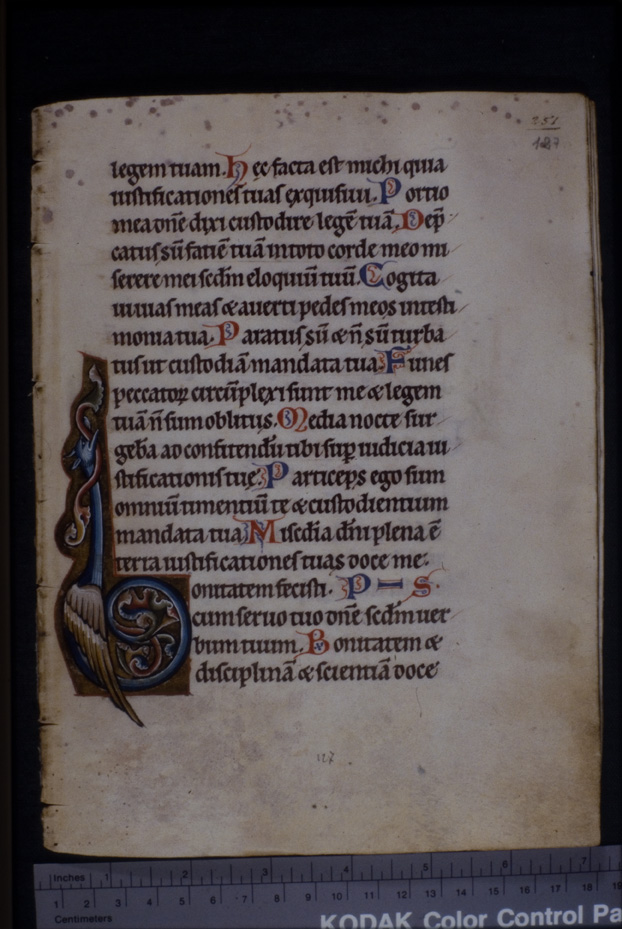 251
187
legem tuam. Hec facta est michi quia
iustificationes tuas exquisiui. Portio
mea dn̄e dixi custodire legē tuā. Dep̄
catus sū faciē tuā in toto corde meo mi
serere mei scdm̄ eloquiū tuū. Cogita
ui uias meas & auerti pedes meos intesti
monia tua. Paratus sū & n̄ sū turba
tus ut custodiā mandata tua. Funes
peccatoꝝ circūplexi sunt me & legem
tuā n̄ sum oblitus. Media nocte sur
gebā ad confitendū tibi sup̄ iudicia iu
stificationis tuę. Particeps ego sum
omniū timentiū te & custodientium
mandata tua. Misc̄dia dn̄i plena ē
terra iustificationes tuas doce me.
Bonitatem fecisti. P S
cum seruo tuo dn̄e scdm̄ uer
bum tuum. Bonitatem &
disciplinā & scientiā doce
127
Inches 1 2 3 4 5 6 7
1 2 3 4 5 6 7 8 9 10 11 12 13 14 15 16 17 18 19
Centimeters
KODAK Color Control Pa